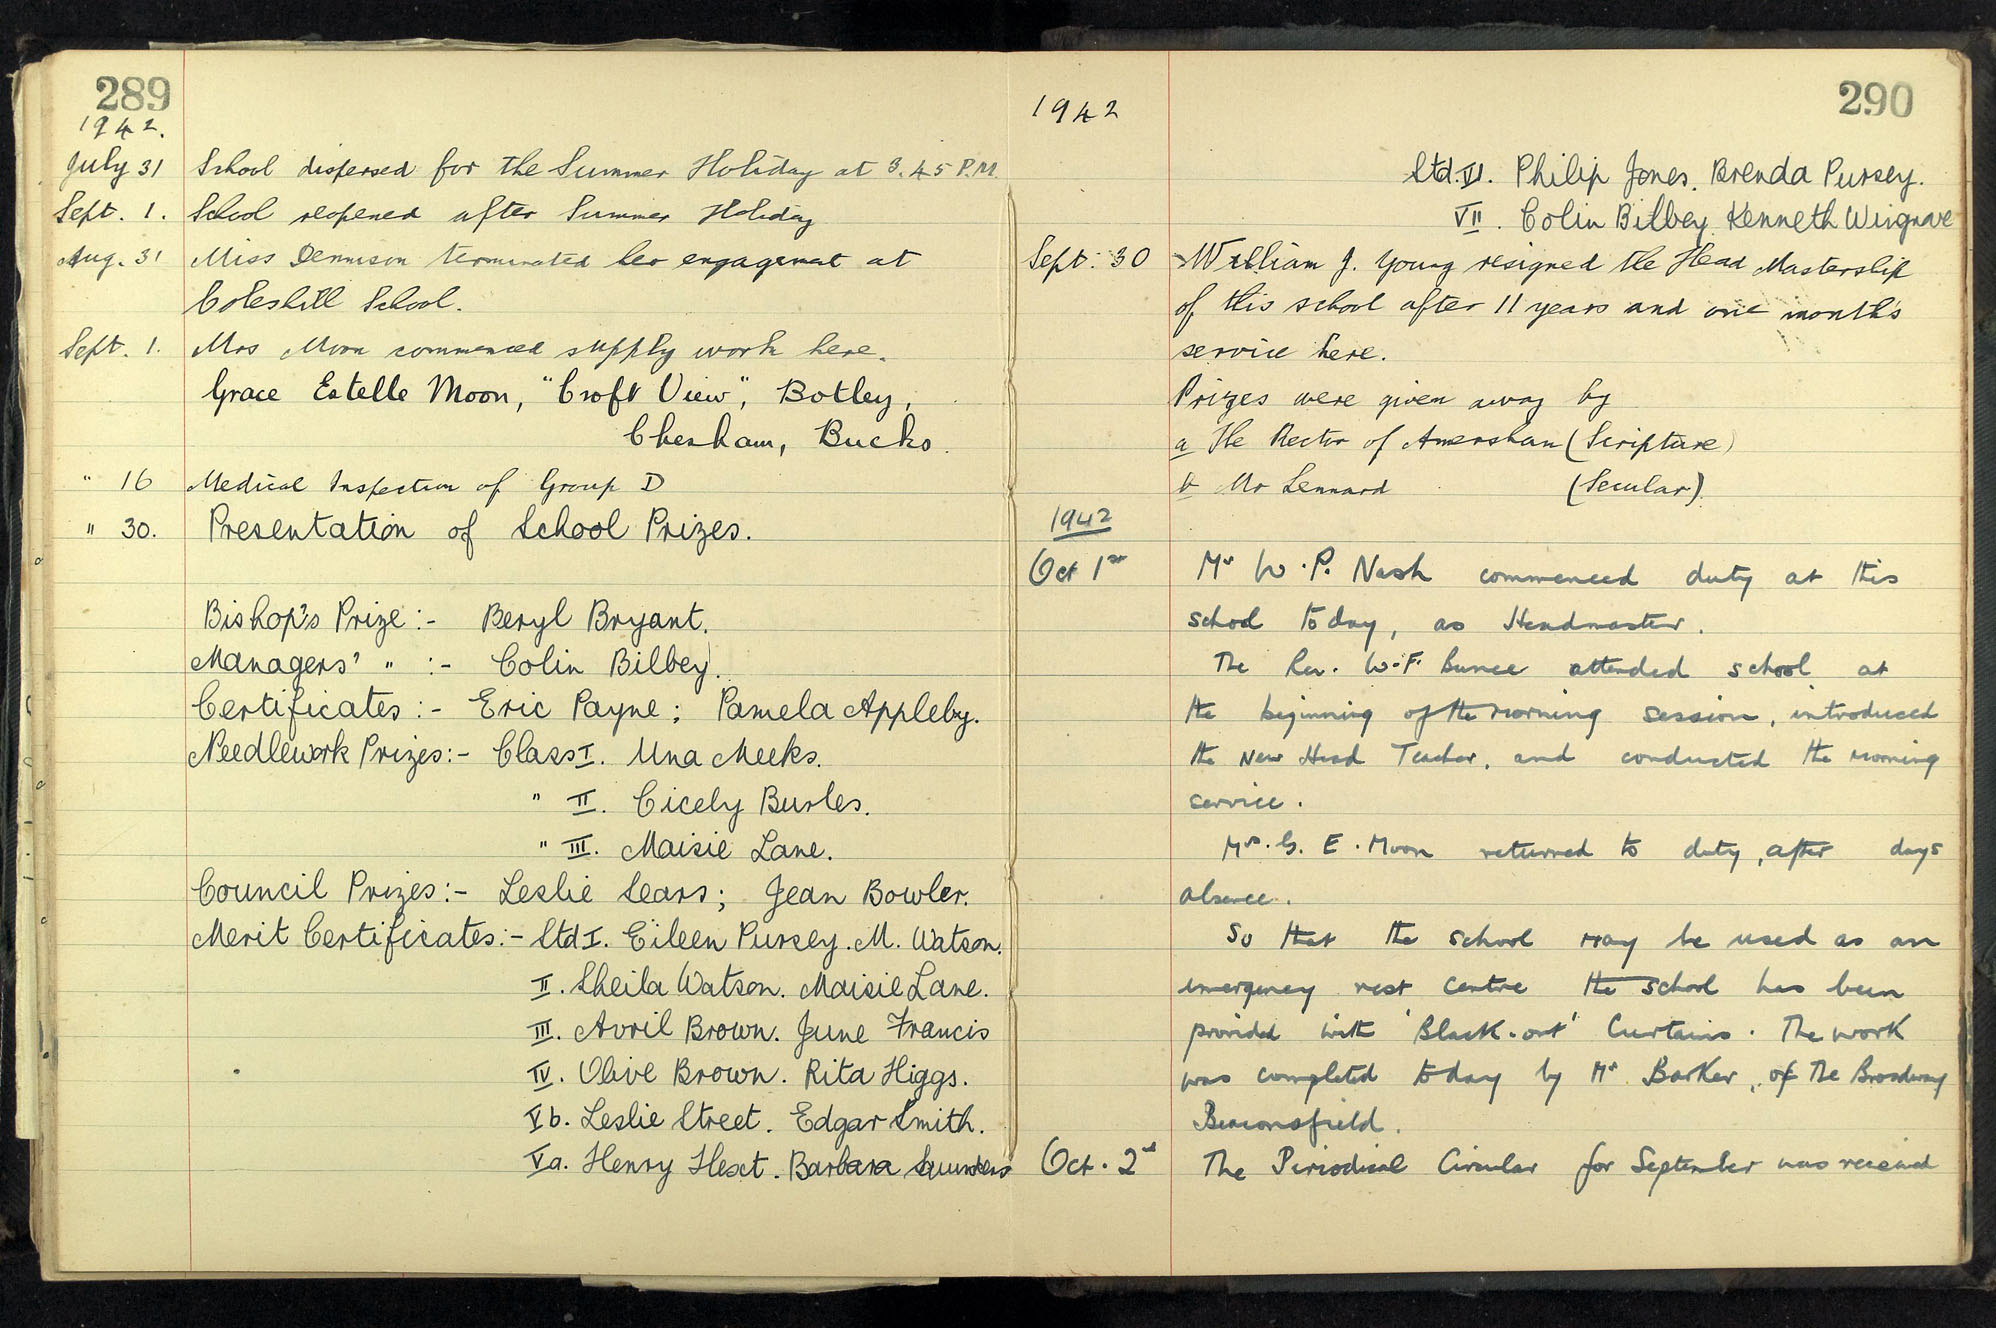 289
1942.
July 31 School dispersed for the Summer Holiday at 3.45 P.M.
Sept. 1. School reopened after Summer Holiday
Aug. 31 Miss Dennison terminated her engagement at
Coleshill School.
Sept. 1. Mrs Moon commenced supply work here.
Grace Estelle Moon, "Croft View", Botley,
Chesham, Bucks.
" 16 Medical Inspection of Group D
" 30. Presentation of School Prizes.
Bishop's Prize :- Beryl Bryant.
Managers' " :- Colin Bilbey.
Certificates :- Eric Payne ; Pamela Appleby.
Needlework Prizes:- Class I. Una Meeks.
" II. Cicely Burles.
" III. Maisie Lane.
Council Prizes:- Leslie Sears ; Jean Bowler.
Merit Certificates:- Std I. Eileen Pursey. M. Watson.
II. Sheila Watson. Maisie Lane.
III. Avril Brown. June Francis
IV. Olive Brown. Rita Higgs.
Vb. Leslie Street. Edgar Smith.
Va. Henry Hext. Barbara Saunders
290
1942
Std. VI. Philip Jones. Brenda Pursey.
VII. Colin Bilbey. Kenneth Wingrave
Sept. 30 William J. Young resigned the Head Mastership
of this school after 11 years and one month's
service here.
Prizes were given away by
a The Rector of Amersham (Scripture)
b Mr Lennard (Secular).
1942
Oct 1st Mr W. P. Nash commenced duty at this
school today, as Headmaster.
The Rev. W. F. Bunce attended school at
the beginning of the morning session, introduced
the New Head Teacher, and conducted the morning
service.
Mrs. G. E. Moon returned to duty, after days
absence.
So that the school may be used as an
emergency rest centre the school has been
provided with 'Black-out' Curtains. The work
was completed today by Mr Barker, of The Broadway
Beaconsfield.
Oct. 2nd The Periodical Circular for September was received